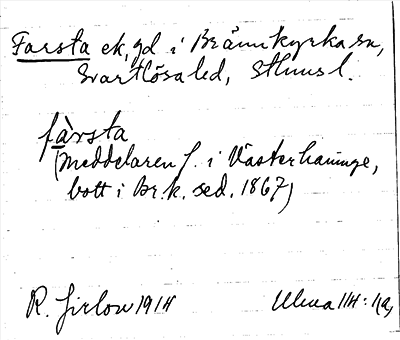 Farsta ek, gd i Brännkyrka sn,
Svartlösa hd, Sthms l.
fàrsta
(Meddelaren f. i Västerhaninge,
bott i Br.k. sed. 1867)
R. Jirlow 1914